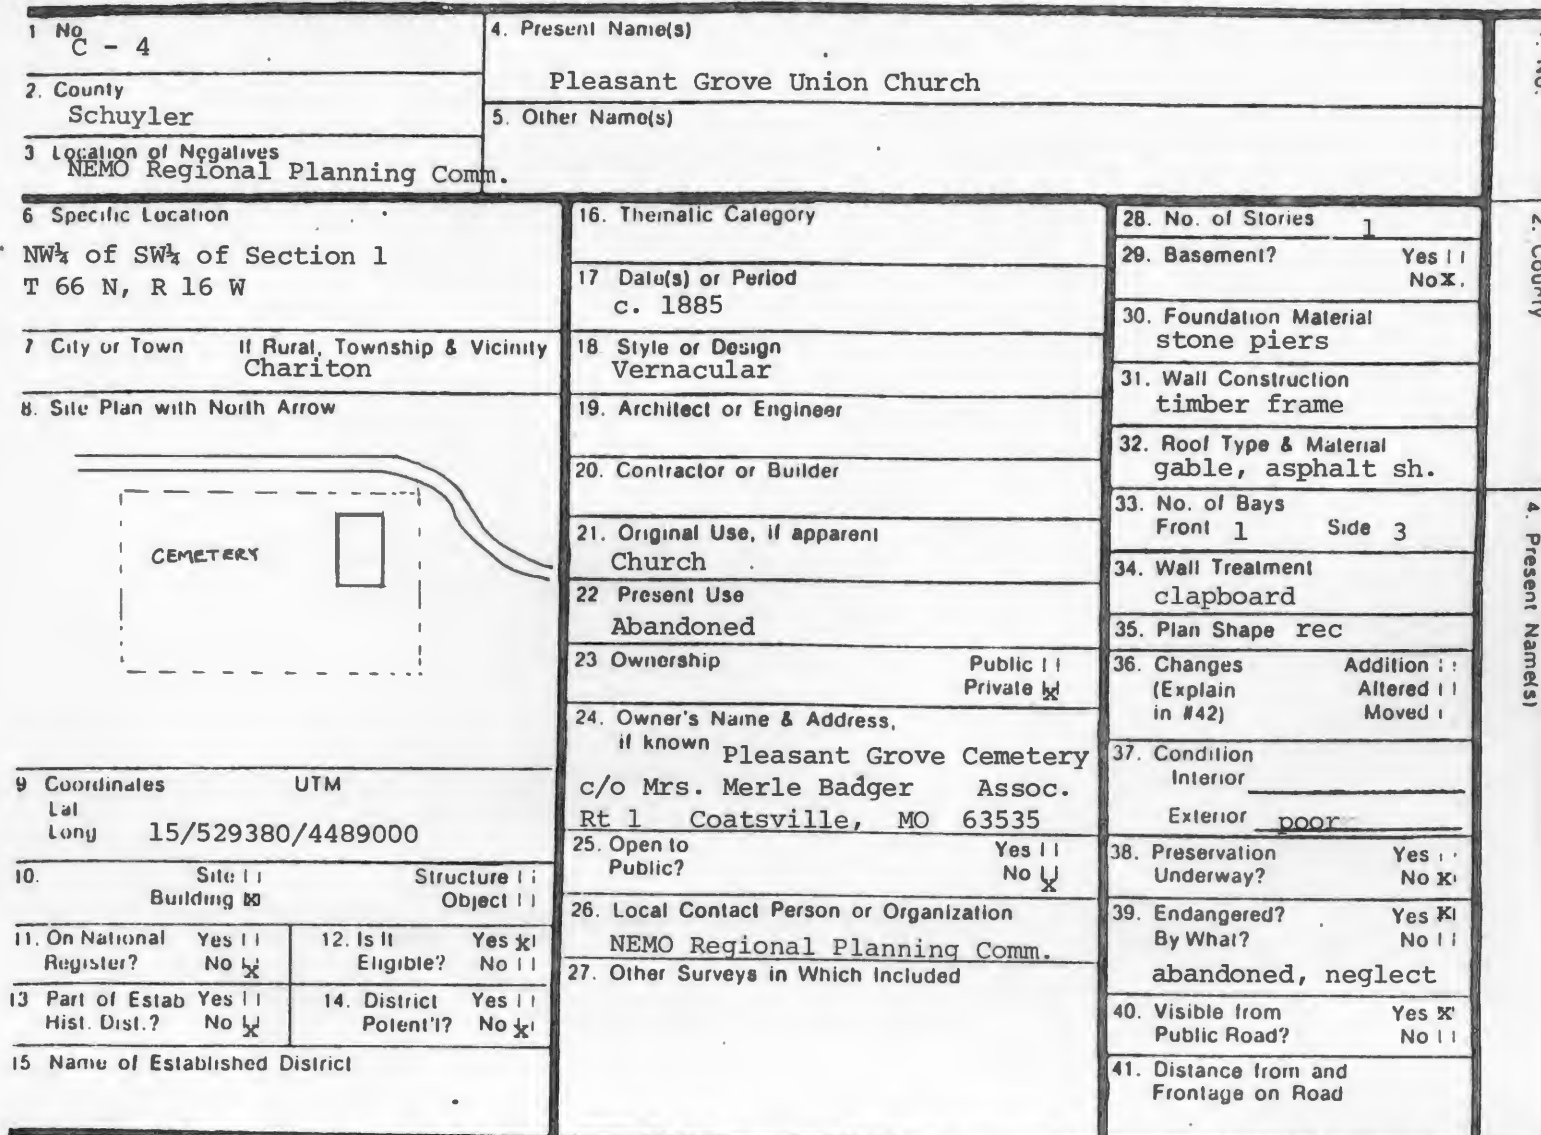 1 No.
C - 4
2. County
Schuyler
3 Location of Negatives
NEMO Regional Planning Comm.
4. Present Name(s)
Pleasant Grove Union Church
5. Other Name(s)
6 Specific Location
NW¼ of SW¼ of Section 1
T 66 N, R 16 W
7 City or Town If Rural, Township & Vicinity
Chariton
8. Site Plan with North Arrow
CEMETERY
9 Coordinates UTM
Lat
Long 15/529380/4489000
10. Site | | Structure | |
Building [X] Object | |
11. On National Yes | | 
Register? No |X|
12. Is It Yes X|
Eligible? No | |
13 Part of Estab Yes | |
Hist. Dist.? No |X|
14. District Yes | |
Potent'l? No X|
15 Name of Established District
16. Thematic Category
17 Date(s) or Period
c. 1885
18 Style or Design
Vernacular
19. Architect or Engineer
20. Contractor or Builder
21. Original Use, if apparent
Church
22 Present Use
Abandoned
23 Ownership Public | |
Private |X|
24. Owner's Name & Address,
if known Pleasant Grove Cemetery
c/o Mrs. Merle Badger Assoc.
Rt 1 Coatsville, MO 63535
25. Open to Yes | |
Public? No |X|
26. Local Contact Person or Organization
NEMO Regional Planning Comm.
27. Other Surveys in Which Included
28. No. of Stories 1
29. Basement? Yes | |
No X
30. Foundation Material
stone piers
31. Wall Construction
timber frame
32. Roof Type & Material
gable, asphalt sh.
33. No. of Bays
Front 1 Side 3
34. Wall Treatment
clapboard
35. Plan Shape rec
36. Changes Addition | |
(Explain Altered | |
in #42) Moved |
37. Condition
Interior
Exterior poor
38. Preservation Yes | |
Underway? No X|
39. Endangered? Yes X|
By What? No | |
abandoned, neglect
40. Visible from Yes X
Public Road? No | |
41. Distance from and
Frontage on Road
1. No.
2. County
4. Present Name(s)